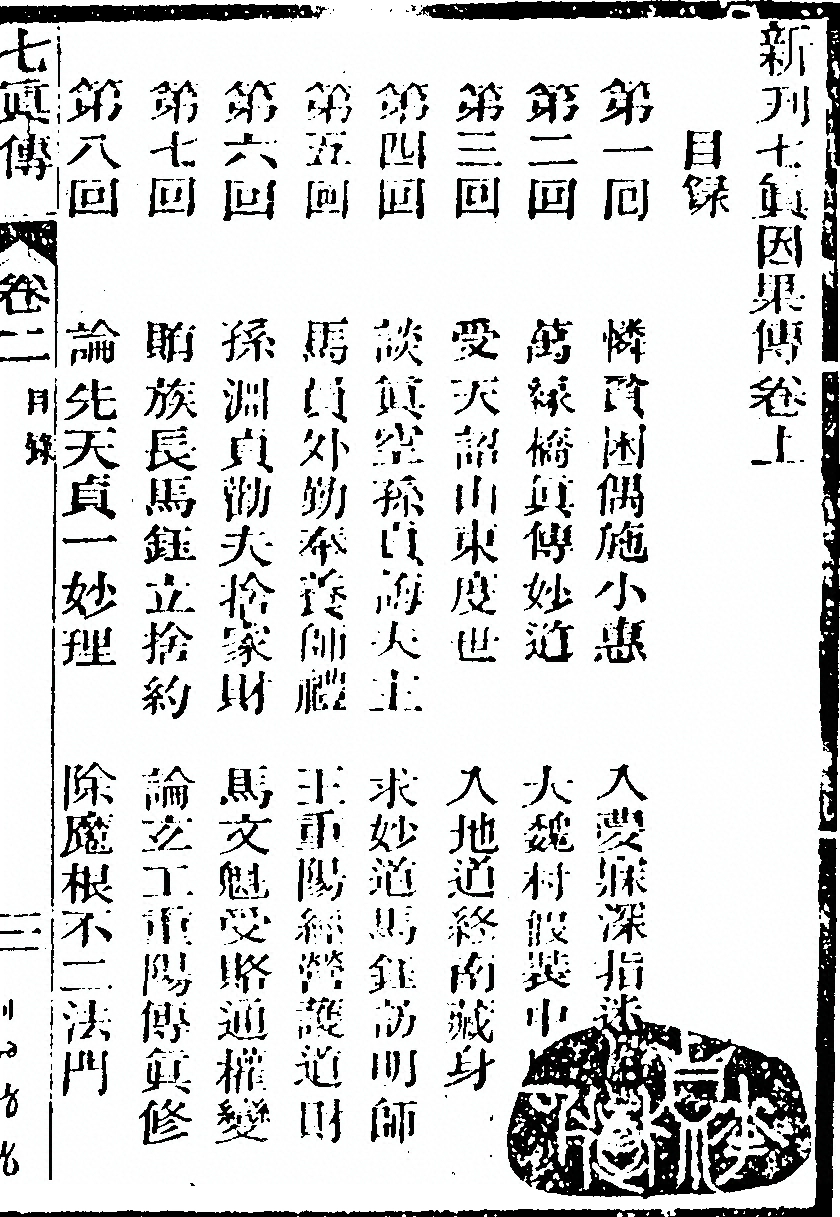 新刊七眞因果傳卷上
目録
第一回 憐貧困偶施小惠 入夢寐深指迷
第二回 萬緣橋眞傳妙道 大魏村假裝中
第三回 受天詔山東度世 入地道終南藏身
第四回 談眞空孫貞誨夫主 求妙道馬鈺訪明師
第五回 馬員外勤奉養師禮 王重陽經營護道財
第六回 孫淵貞勸夫捨家財 馬文魁受賂通權變
第七回 賄族長馬鈺立捨約 論玄工重陽傳眞修
第八回 論先天貞一妙理 除魔根不二法門
七眞傳 卷二 目錄 三